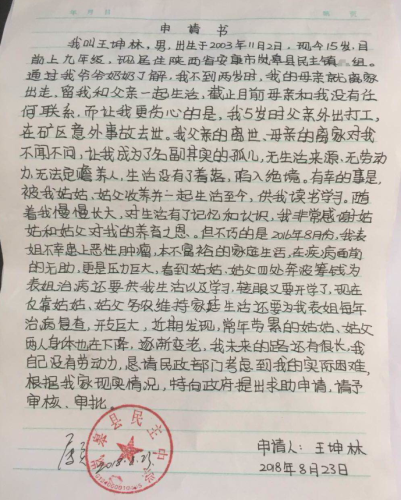 申请书
我叫王坤林,男,出生于2003年11月2日,现今15岁,目
前上九年级,现居住陕西省安康市岚皋县民主镇 组。
通过我爷爷奶奶了解,我不到两岁时,我的母亲就离家
出走,留我和父亲一起生活,截止目前母亲和我没有任
何联系,而让我更伤心的是,我5岁时父亲外出打工,
在矿区意外事故去世。我父亲的离世、母亲的离家对我
不闻不问,让我成为了名副其实的孤儿,无生活来源、无劳动
力,无法见赡养人,生活没有了着落,陷入绝境。有幸的事是,
被我姑姑、姑父收养并一起生活至今,供我读书学习。随
着我慢慢长大,对生活有了记忆和认识,我非常感谢姑
姑和姑父对我的养育之恩。但不巧的是2016年8月份,我表
姐不幸患上恶性肿瘤,本不富裕的家庭生活,在疾病面前
的无助,更是压力巨大,看到姑姑、姑父四处奔波筹钱为
表姐治病还要供我生活以及学习,转眼又要开学了,现在
仅靠姑姑、姑父务农维持家庭生活还要为我表姐每年
治病复查,开支巨大,近期发现,常年劳累的姑姑、姑父
两人身体也在下降,逐渐变老,我未来的路还有很长,我
自己没有劳动力,恳请民政部门考虑到我的实际困难,
根据我家现实情况,特向政府提出求助申请,请予
审核、审批。
岚皋县民主中学
2018.8.23
申请人:王坤林
2018年8月23日